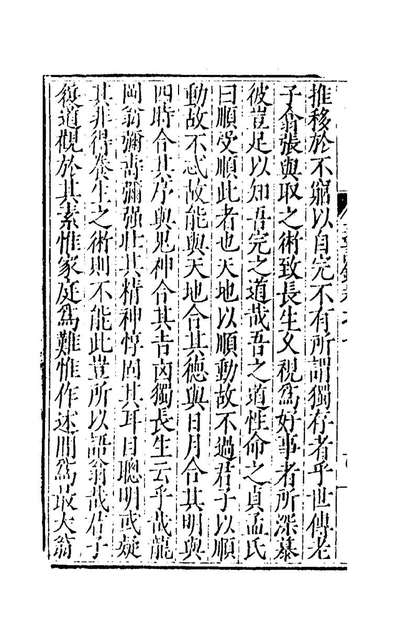 推移於不窮以自完不有所謂獨存者乎世傳老
子翕張與取之術致長生久視爲好事者所深慕
彼豈足以知吾完之道哉吾之道性命之貞孟氏
曰順受順此者也天地以順動故不過君子以順
動故不忒故能與天地合其德與日月合其明與
四時合其序與鬼神合其吉凶獨長生云乎哉龍
岡翁彌壽彌强壯其精神惇固其耳目聰明或疑
其非得養生之術則不能此豈所以語翁哉君子
復道觀於其素惟家庭爲難惟作述間爲最大翁